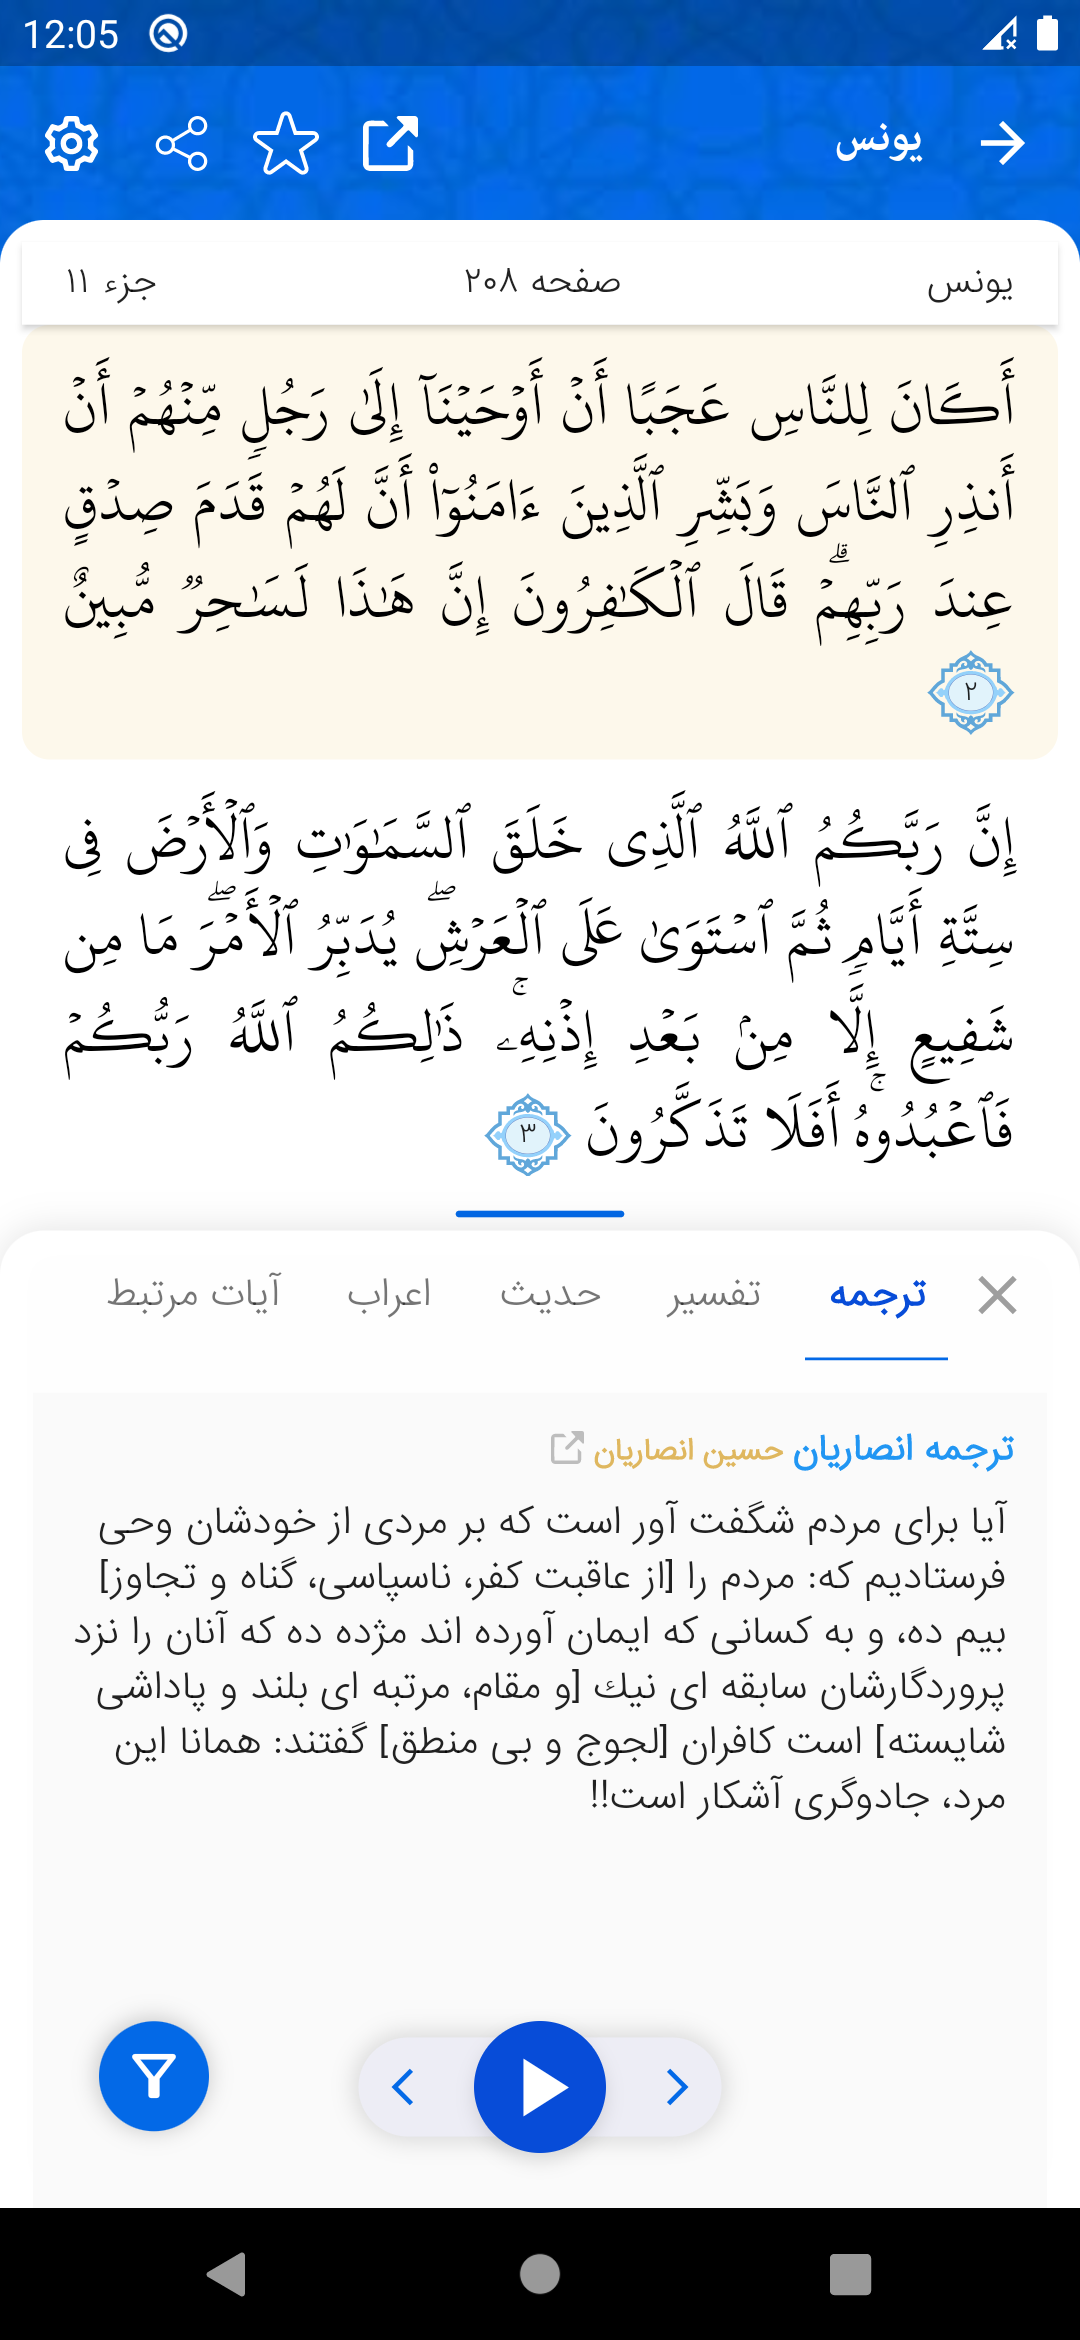 12:05
یونس
یونس صفحه ۲۰۸ جزء ۱۱
أَكَانَ لِلنَّاسِ عَجَبًا أَنۡ أَوۡحَيۡنَآ إِلَىٰ رَجُلٖ مِّنۡهُمۡ أَنۡ
أَنذِرِ ٱلنَّاسَ وَبَشِّرِ ٱلَّذِينَ ءَامَنُوٓاْ أَنَّ لَهُمۡ قَدَمَ صِدۡقٍ
عِندَ رَبِّهِمۡۗ قَالَ ٱلۡكَٰفِرُونَ إِنَّ هَٰذَا لَسَٰحِرٞ مُّبِينٌ
۲
إِنَّ رَبَّكُمُ ٱللَّهُ ٱلَّذِى خَلَقَ ٱلسَّمَٰوَٰتِ وَٱلۡأَرۡضَ فِى
سِتَّةِ أَيَّامٖ ثُمَّ ٱسۡتَوَىٰ عَلَى ٱلۡعَرۡشِۖ يُدَبِّرُ ٱلۡأَمۡرَۖ مَا مِن
شَفِيعٍ إِلَّا مِنۢ بَعۡدِ إِذۡنِهِۦۚ ذَٰلِكُمُ ٱللَّهُ رَبُّكُمۡ
فَٱعۡبُدُوهُۚ أَفَلَا تَذَكَّرُونَ ۳
ترجمه تفسیر حدیث اعراب آیات مرتبط
ترجمه انصاریان حسین انصاریان
آیا برای مردم شگفت آور است که بر مردی از خودشان وحی
فرستادیم که: مردم را [از عاقبت کفر، ناسپاسی، گناه و تجاوز]
بیم ده، و به کسانی که ایمان آورده اند مژده ده که آنان را نزد
پروردگارشان سابقه ای نیك [و مقام، مرتبه ای بلند و پاداشی
شایسته] است کافران [لجوج و بی منطق] گفتند: همانا این
مرد، جادوگری آشکار است!!